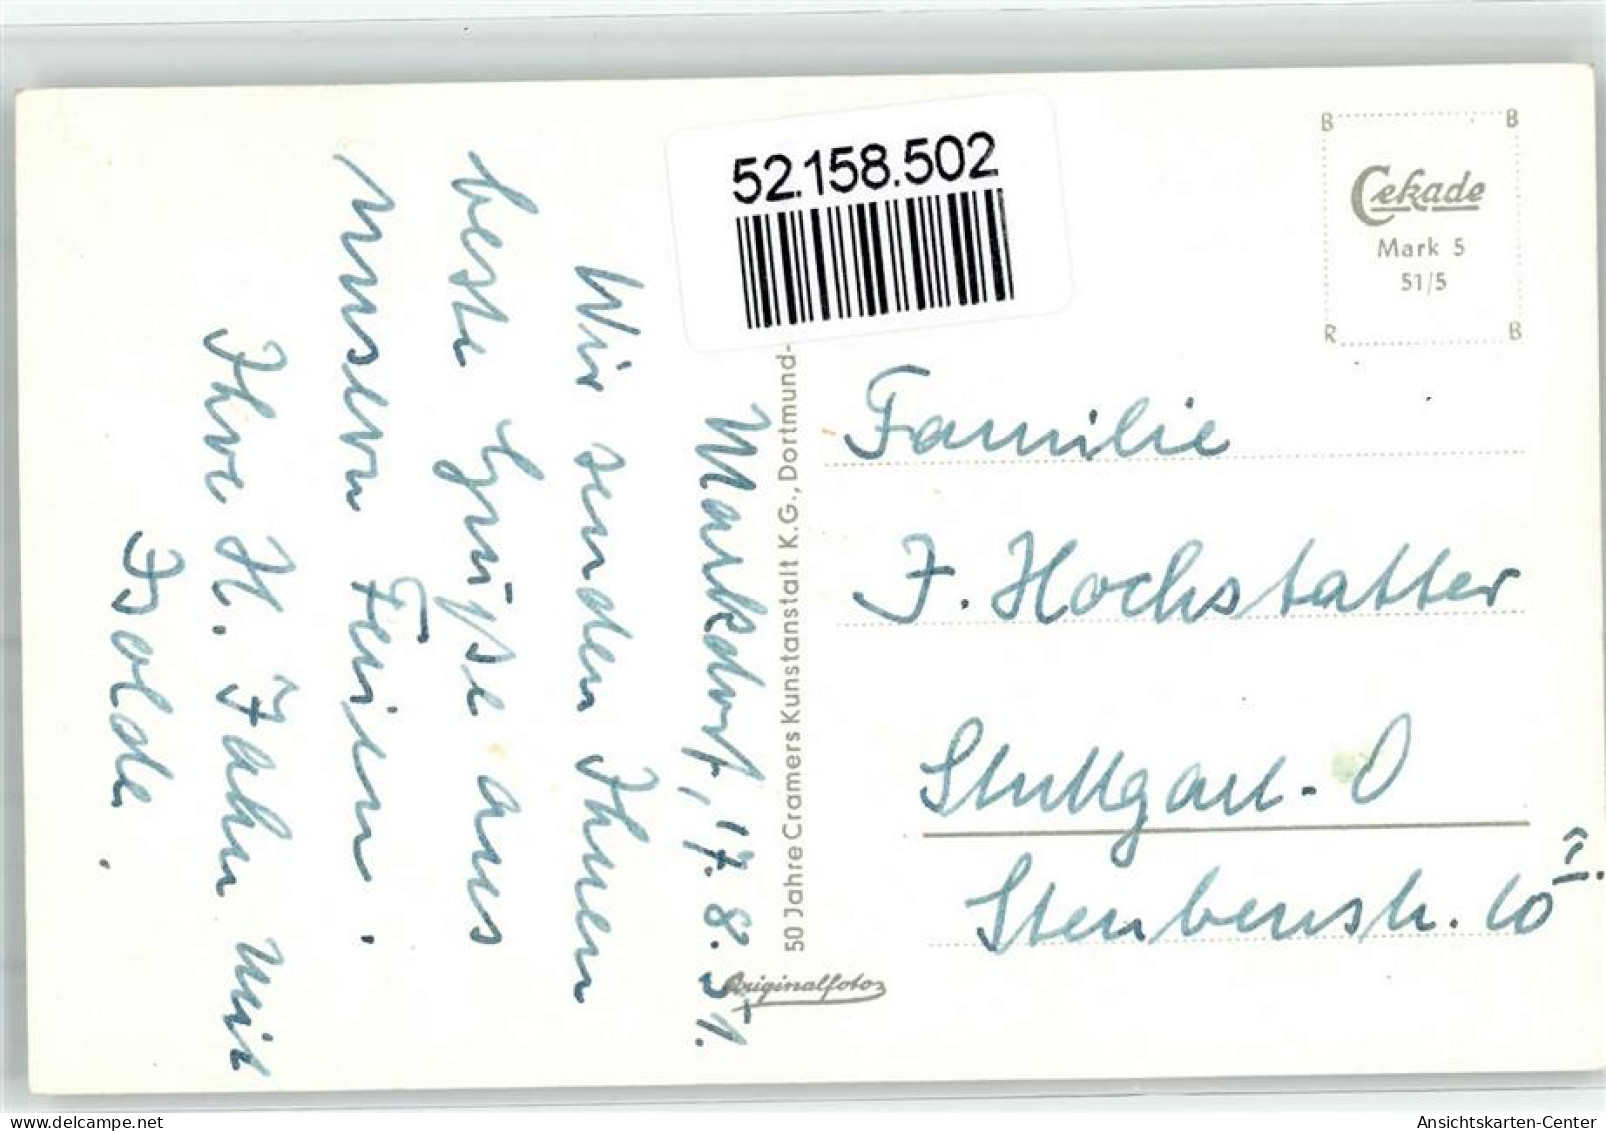 52.158.502
B B
Cekade
Mark 5
51/5
R B
50 Jahre Cramers Kunstanstalt K.G., Dortmund-
Originalfoto
Markdorf, 17. 8. 51.
Wir senden Ihnen
beste Grüße aus
unsern Ferien.
Ihre H. Jahn mit
Isolde.
Familie
J. Hochstatter
Stuttgart-O
Steubenstr. 10 II.
Ansichtskarten-Center